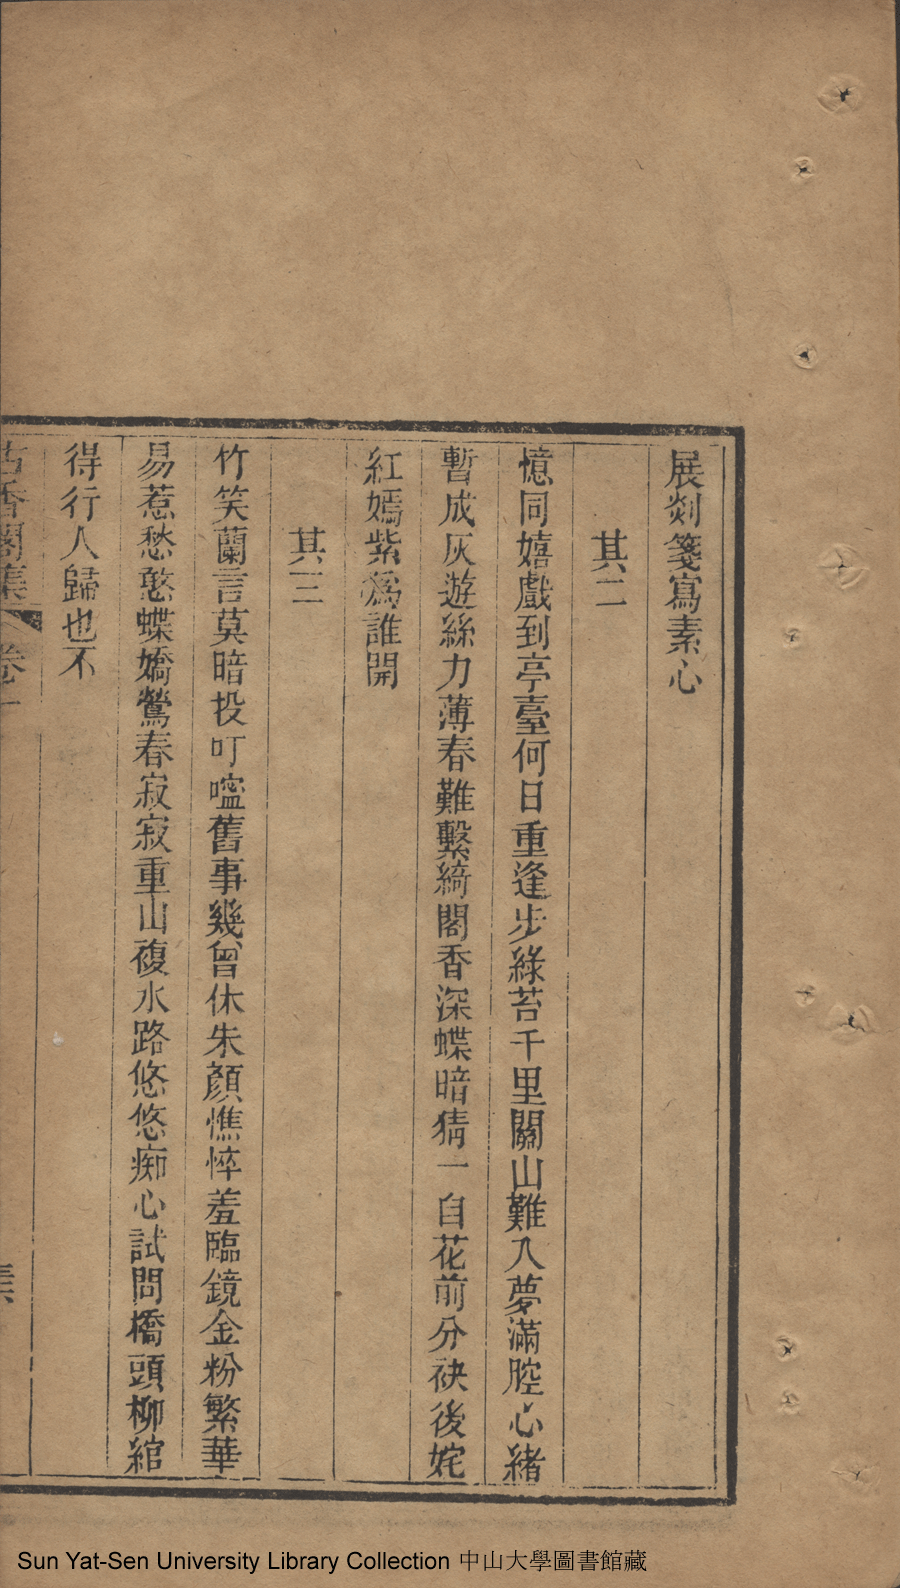 展剡箋寫素心
其二
憶同嬉戲到亭臺何日重逢步綠苔千里關山難入夢滿腔心緒
暫成灰遊絲力薄春難繫綺閣香深蝶暗猜一自花前分袂後姹
紅嫣紫爲誰開
其三
竹笑蘭言莫暗投叮嚀舊事幾曾休朱顏憔悴羞臨鏡金粉繁華
易惹愁憨蝶嬌鶯春寂寂重山複水路悠悠痴心試問橋頭柳綰
得行人歸也不
古香閣集 卷一
Sun Yat-Sen University Library Collection 中山大學圖書館藏